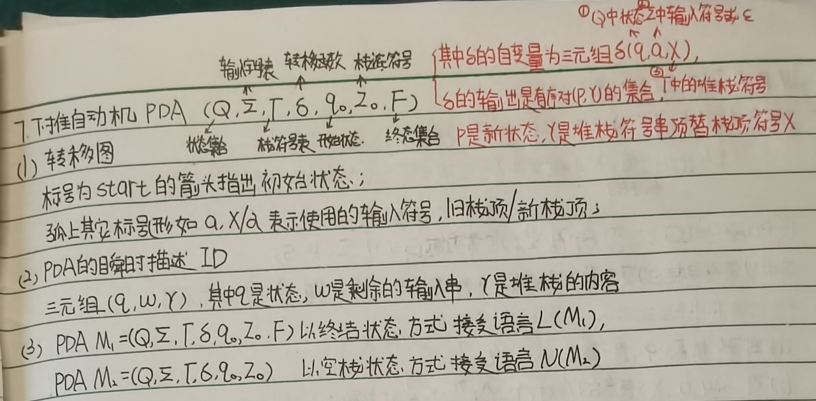 ①Q中状态 ②Σ中输入符号或ε
输入字母表 转移函数 栈底符号
其中δ的自变量为三元组δ(q,a,X),
③Γ中的堆栈符号
7.下推自动机 PDA (Q,Σ,Γ,δ,q₀,Z₀,F)
δ的输出是有序对(P,γ)的集合,
状态集合 栈符号表 开始状态 终态集合
P是新状态,γ是堆栈符号串顶替栈顶符号X
(1)转移图
标号为start的箭头指出初始状态;
弧上其它标号形如 a,X/α 表示使用的输入符号,旧栈顶/新栈顶;
(2)PDA的瞬时描述 ID
三元组(q,w,γ),其中q是状态,w是剩余的输入串,γ是堆栈的内容
(3) PDA M₁=(Q,Σ,Γ,δ,q₀,Z₀,F) 以终结状态方式接受语言L(M₁),
PDA M₂=(Q,Σ,Γ,δ,q₀,Z₀) 以空栈状态方式接受语言N(M₂)